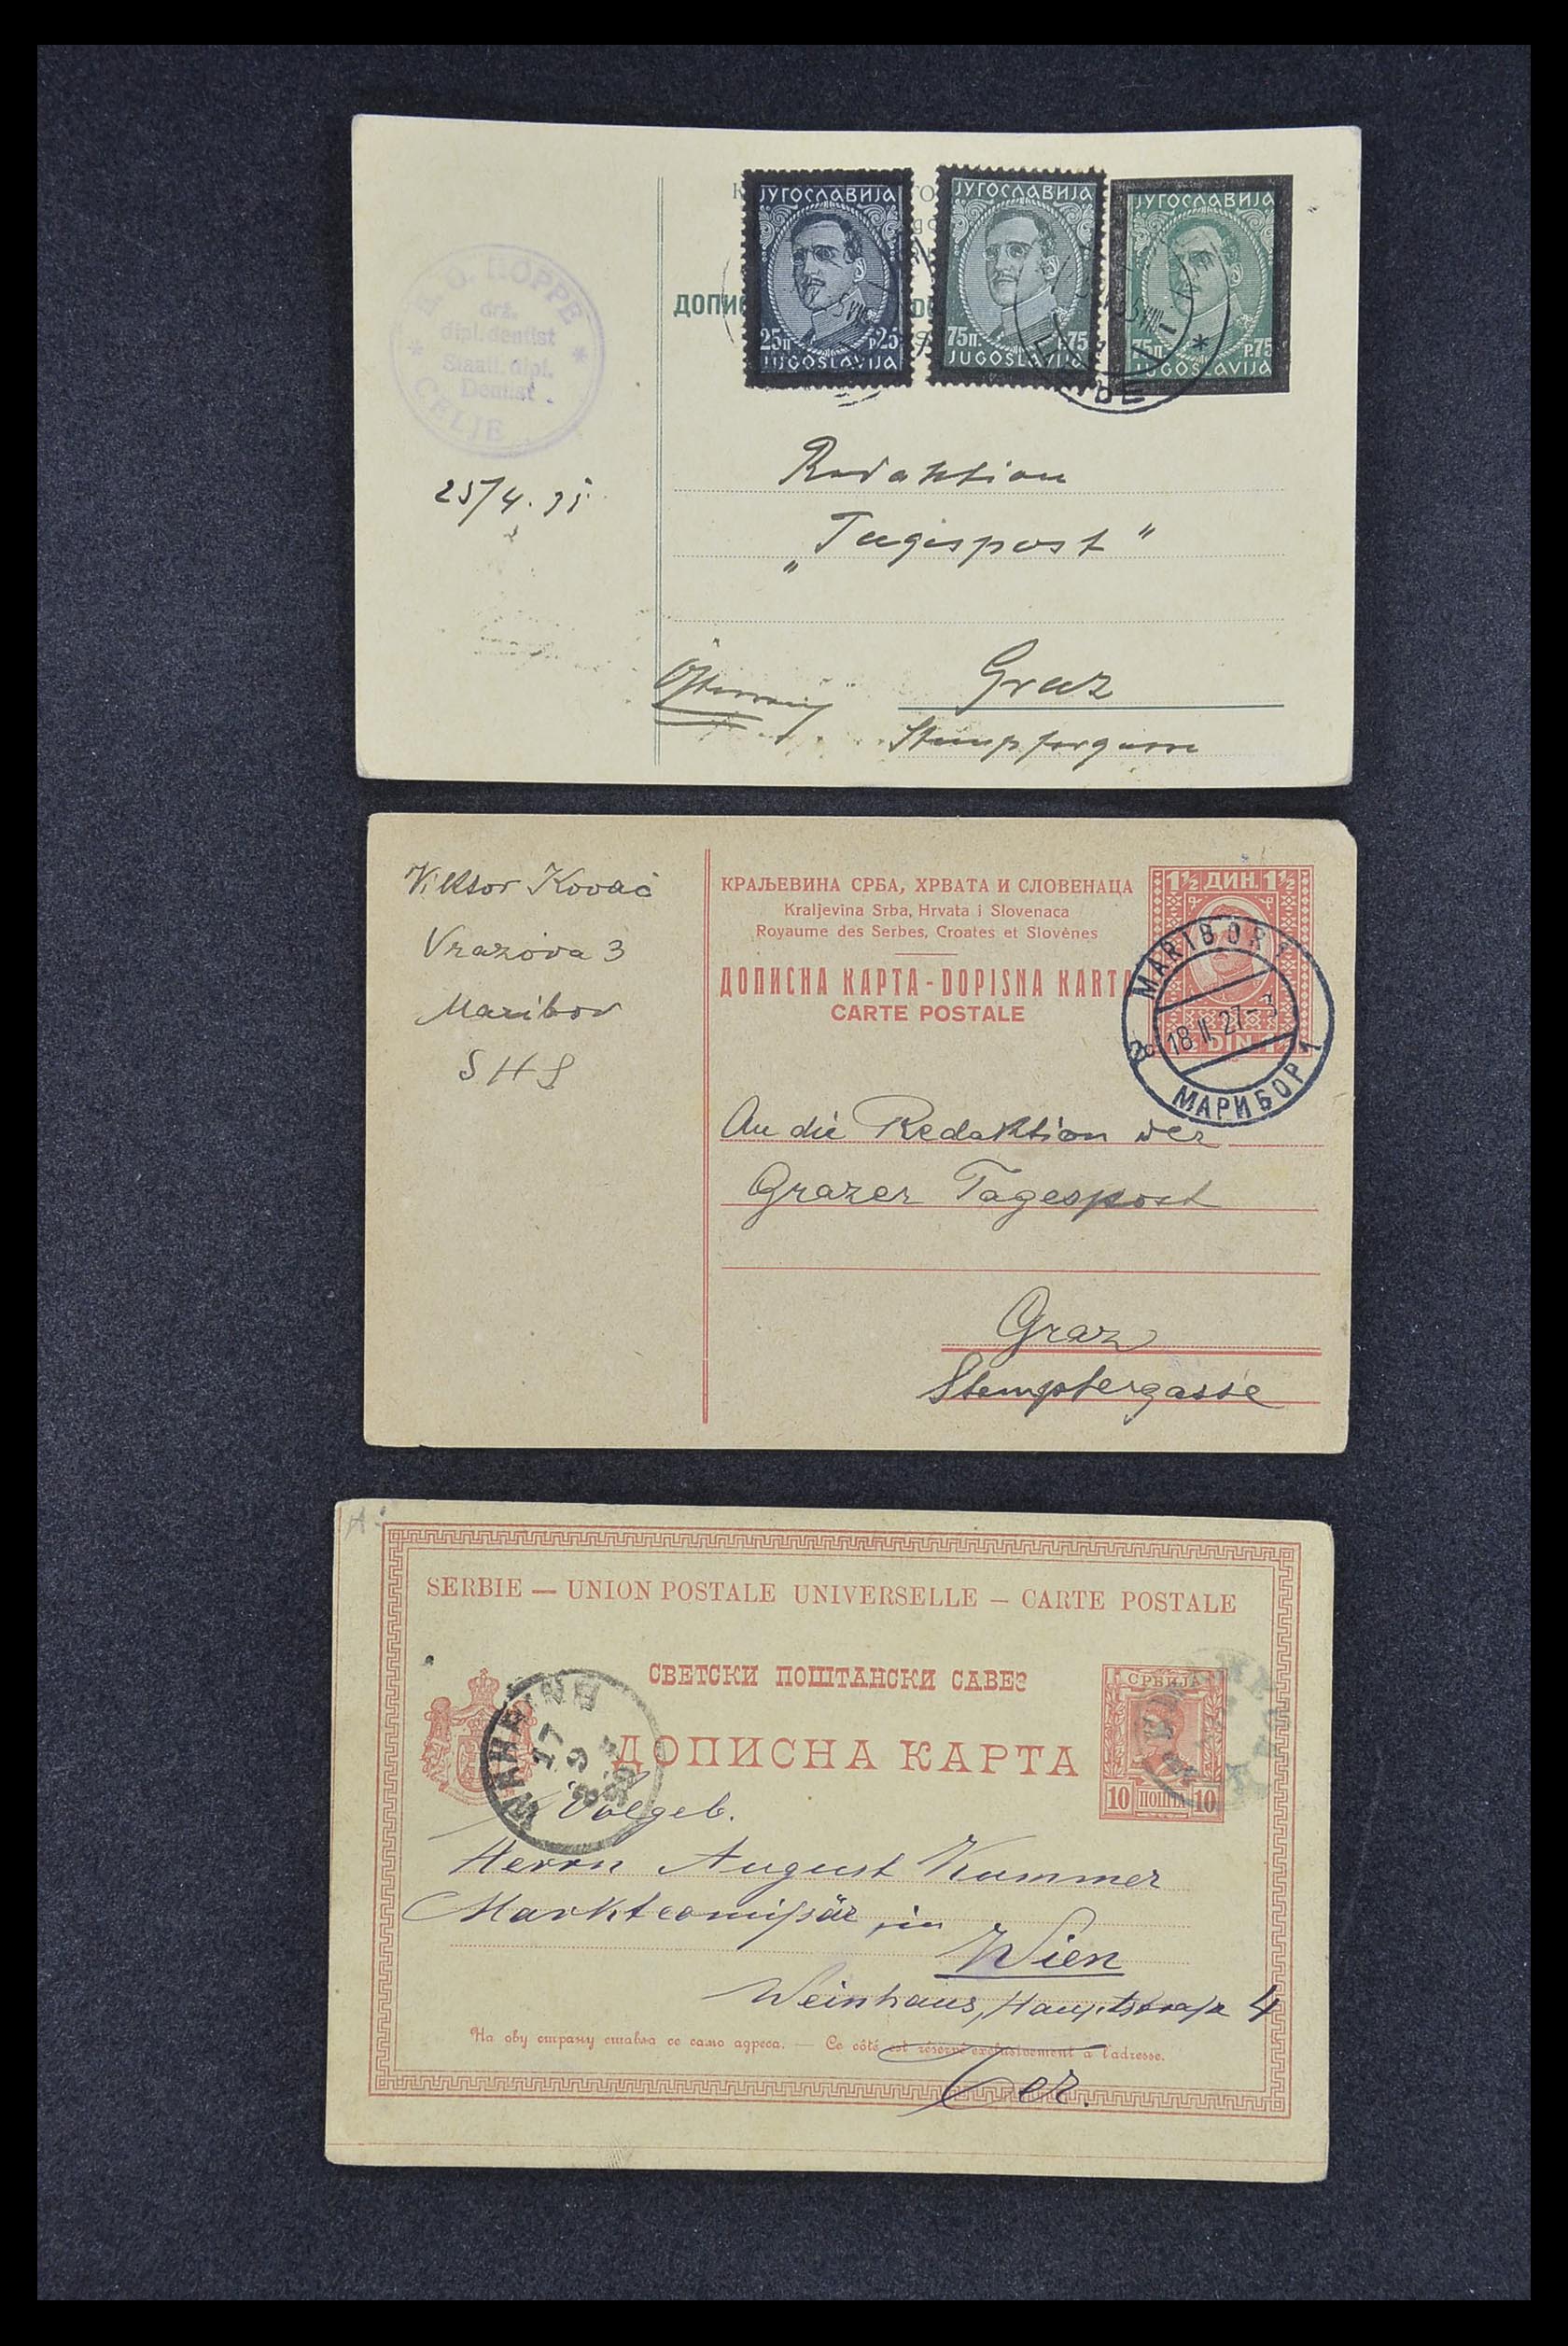 H. O. HOPPE
drž.
dipl. dentist
Staatl. dipl.
Dentist
CELJE
25/4. 35
ДОПИС
ЈУГОСЛАВИЈА
25п P25
JUGOSLAVIJA
ЈУГОСЛАВИЈА
75п. P.75
JUGOSLAVIJA
ЈУГОСЛАВИЈА
75п. P.75
JUGOSLAVIJA
Redaktion
„Tagespost"
Graz
Österreich
Stempfergasse
Viktor Kovač
Vrazova 3
Maribor
SHS
КРАЉЕВИНА СРБА, ХРВАТА И СЛОВЕНАЦА
Kraljevina Srba, Hrvata i Slovenaca
Royaume des Serbes, Croates et Slovènes
ДОПИСНА КАРТА - DOPISNA KARTA
CARTE POSTALE
1½ ДИН. 1½
DIN
MARIBOR 1
18 II. 27-3
МАРИБОР 1
An die Redaktion der
Grazer Tagespost
Graz
Stempfergasse
SERBIE — UNION POSTALE UNIVERSELLE — CARTE POSTALE
СВЕТСКИ ПОШТАНСКИ САВЕЗ
ДОПИСНА КАРТА
СРБИЈА
10 ПОШТА 10
WÄHRING
17
9
Volgeb.
Herrn August Kummer
Marktcomißär in
Wien
Weinhaus, Hauptstraße 4
На ову страну ставља се само адреса. — Ce côté est réservé exclusivement à l'adresse.